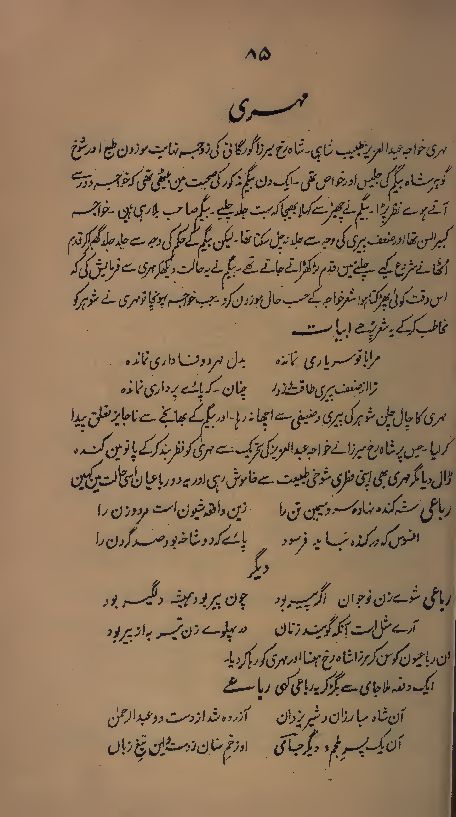 ۸۵
مہری
مہری خواجہ عبدالعزیز طبیب شاہی۔ شاہ رخ میرزا گورگانی کی زوجہ نہایت موزون طبع اور شوخ
گوہر شاد بیگم کی جلیس اور خواص تھی۔ ایک دن بیگم مذکور کی صحبت مین بیٹھی تھی کہ خوجہ دور سے
آتے ہوے نظر پڑا۔ بیگم نے چھیڑ سے کہلا بھیجا کہ بہت جلد چلیے۔ بیگم صاحب بلا رہی ہین۔ خواجہ
کبیر السن تھا اور ضعف پیری کی وجہ سے جلد نہ چل سکتا تھا۔ لیکن بیگم کے حکم کی وجہ سے جلد جلد گھبرا کر قدم
اٹھانے شروع کیے۔ چلنے مین قدم لڑکھڑاتے جاتے تھے۔ بیگم نے یہ حالت دیکھکر مہری سے فرمایش کی کہ
اس وقت کوئی پھڑکتا ہوا شعر خواجہ کے حسب حال موزون کرو۔ جب خواجہ پہونچا تو مہری نے شوہر کو
مخاطب کر کے یہ شعر پڑھے ابیات
مرا با تو سر یاری نماندہ بدل مہر و وفاداری نماندہ
ترا از ضعف پیری طاقت و زور چنان۔ کہ پاے برداری نماندہ
مہری کا چال چلن شوہر کی پیری و ضعیفی سے اچھا نہ رہا۔ اور بیگم کے بھانجے سے ناجایز تعلق پیدا
کر لیا۔ جس پر شاہ رخ میرزا نے خواجہ عبدالعزیز کی تحریک سے مہری کو نظر بند کر کے پانو مین کندہ
ڈال دیا مگر مہری بھی اپنی فطری شوخی طبیعت سے خاموش رہی اور یہ دو رباعیان اسی حالت مین کہین
رباعی شہ کندہ نہادہ سرو سیمین تن را زین واقعہ شیون است مرد و زن را
افسوس کہ در کندہ نباید فرسود پاے کہ دو شاخہ بود صد گردن را
دیگر
رباعی شوے زن نوجوان اگر پیر بود چون پیر بود ہمیشہ دلگیر بود
آرے مثل است آنکہ گویند زنان در پہلوے زن تیر بہ از پیر بود
ان رباعیون کو سن کر مرزا شاہ رخ ہنسا اور مہری کو رہا کر دیا۔
ایک دفعہ ملا جامی سے بگڑ کر یہ رباعی کہی رباعے
آن شاہ مبارزان و شیر یزدان آزردہ شد از دست دو عبدالرحمن
آن یک پسر ملجم و دیگر جامی او زخم سنان زدست و این تیغ زبان